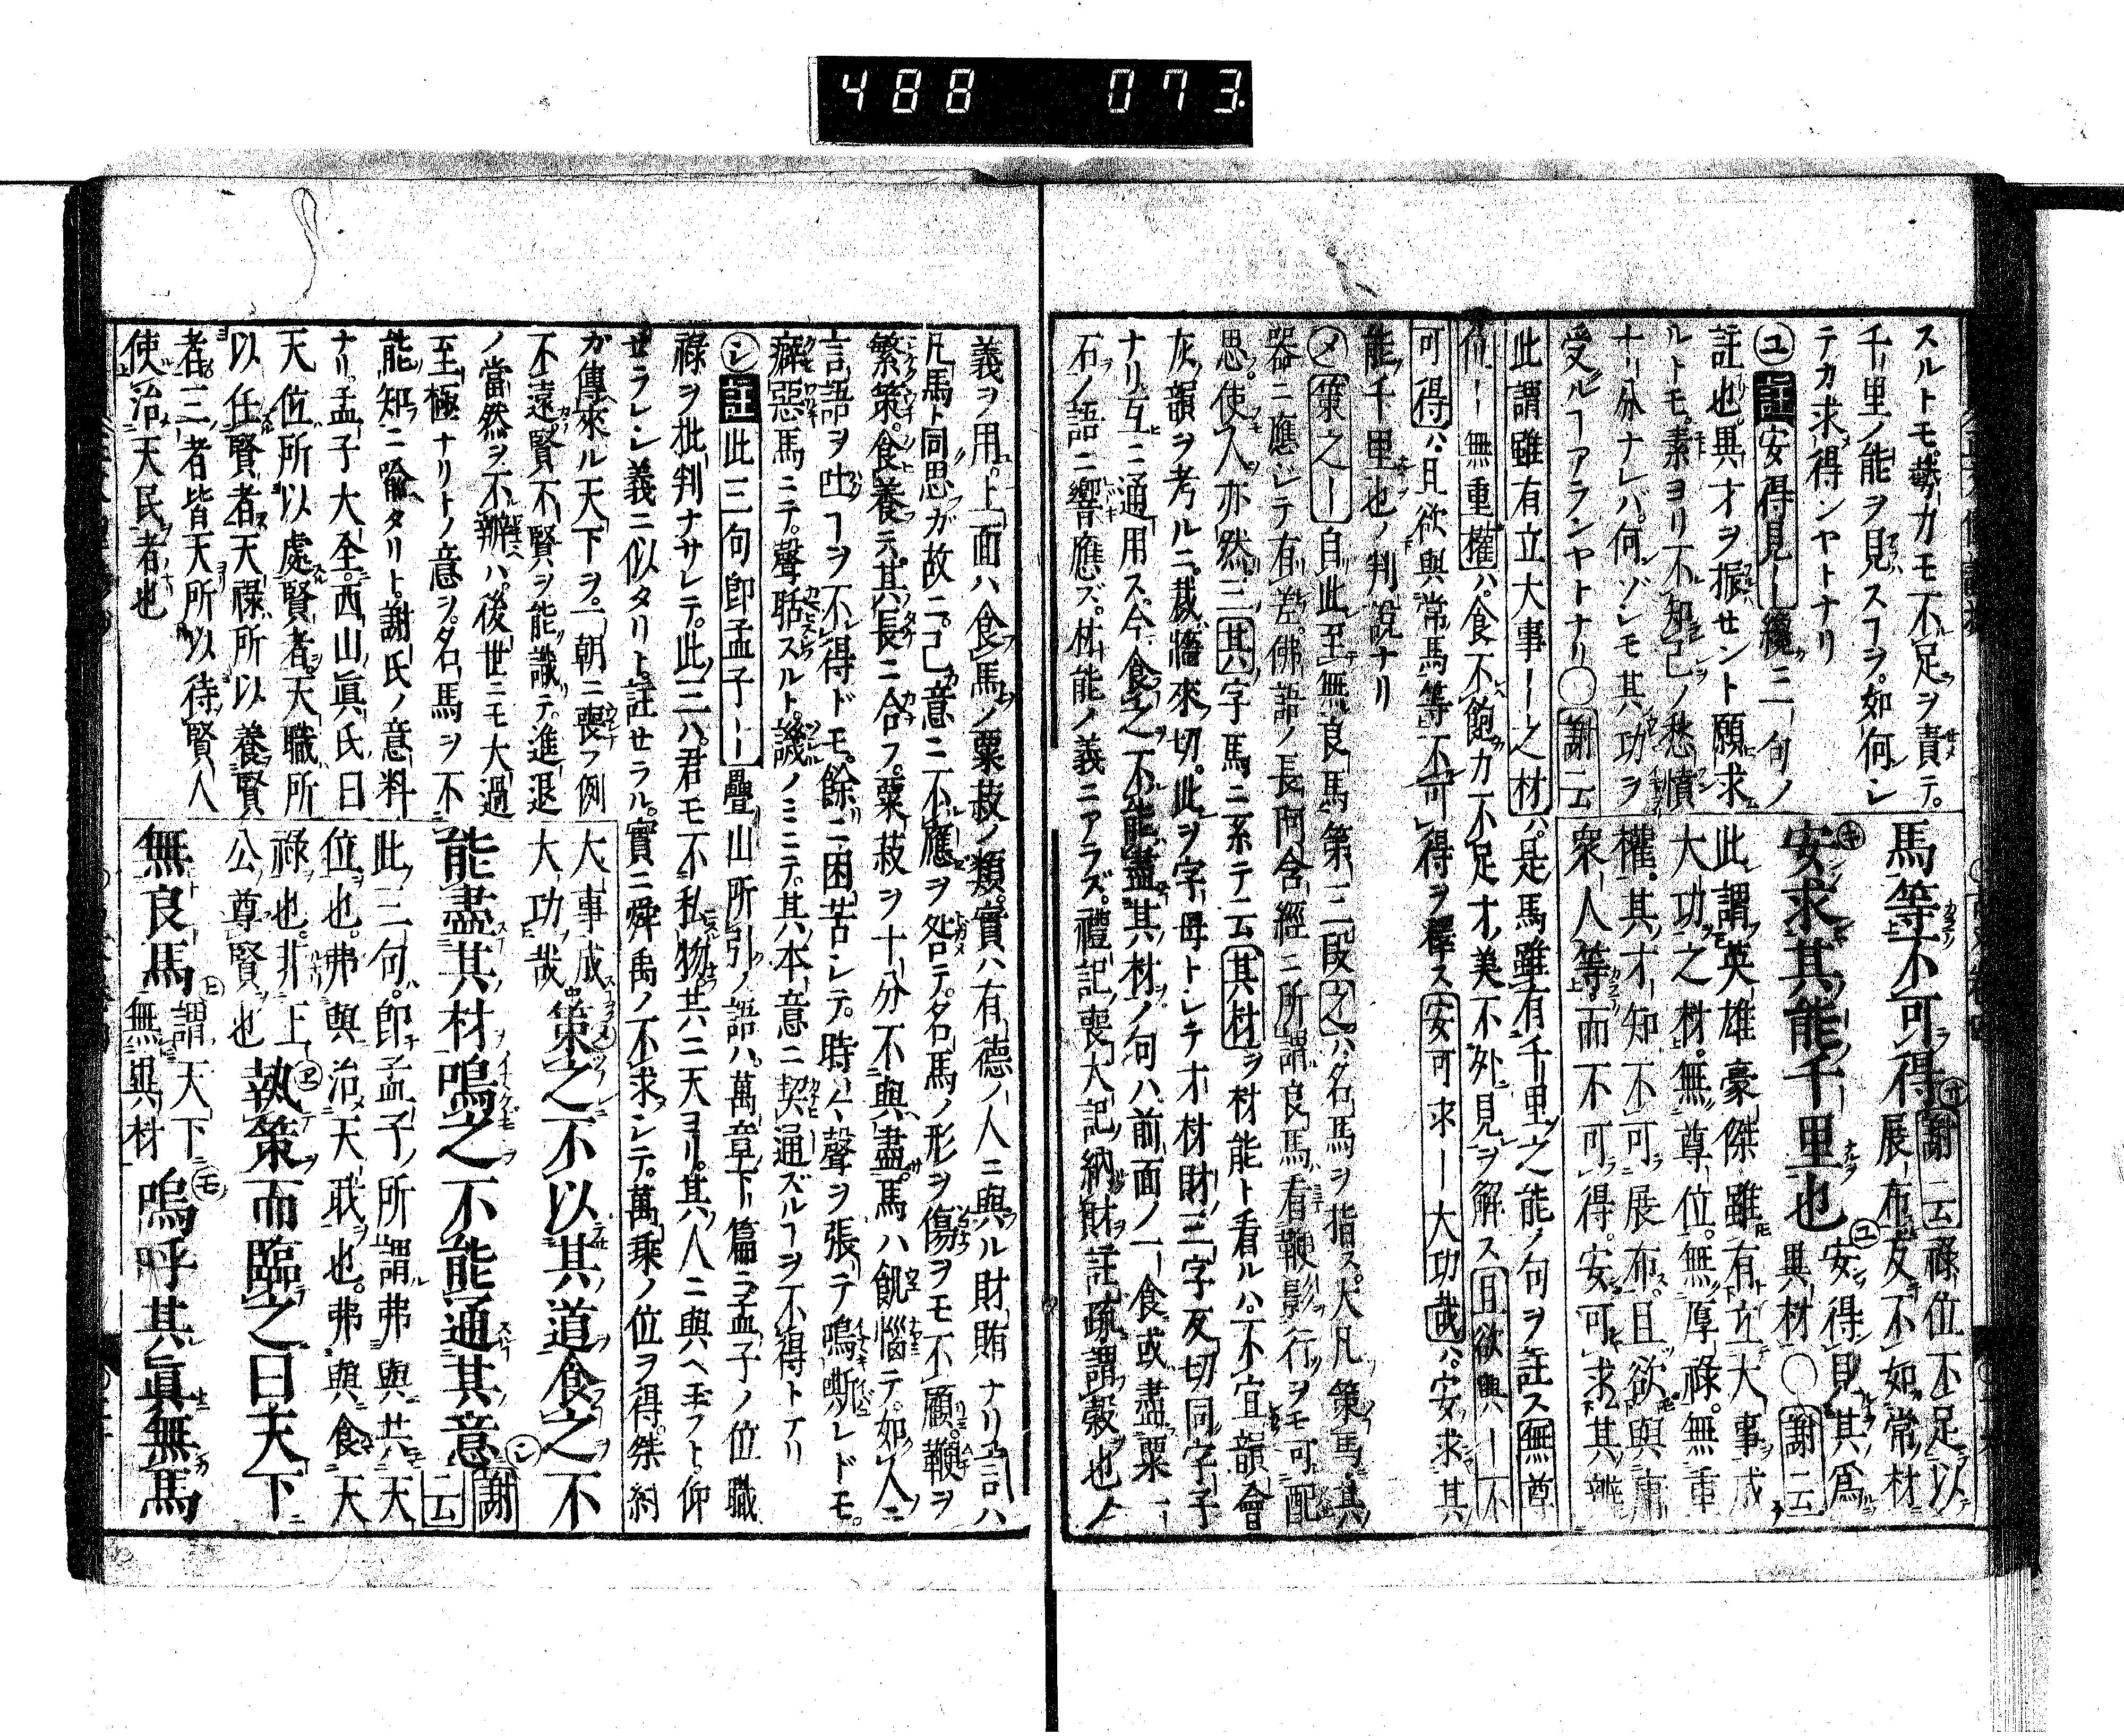 488 073
スルトモ。勢カモ不足ヲ責テ。
千里ノ能ヲ見スヿヲ。如何ン
テカ求得ンヤトナリ
ユ 註 安得見― 纔ニ一句ノ
註也。異才ヲ振セント願求
ルトモ。素ヨリ不知己ノ愁憤
ナリ分ナレバ。何ゾンモ其功ヲ
受ルヿアランヤトナリ ○謝云
馬等不可得 謝云祿位不足以
展布反不如常材
安求其能千里也 安得見其爲
異材 ○謝云
此謂英雄豪傑雖有立大事成
大功之材。無尊位。無厚祿。無重
權。其才知不可展布。且欲與庸
衆人等而不可得。安可求其辦
此謂雖有立大事―之材ハ。是馬雖有千里之能ノ句ヲ註ス 無尊
位―無重權ハ。食不飽力不足才美不外見ヲ解ス 且欲與―不
可得ハ。且欲與常馬等不可得ヲ釋ス 安可求―大功哉ハ。安求其
能千里也ノ判説ナリ
メ 策之― 自此至無良馬第二段 之ハ名馬ヲ指ス。大凡策馬。其
器ニ應シテ有差。佛語ノ長阿含經ニ所謂良馬看鞭影行ヲモ可配
思。使人亦然。三 其 字馬ニ系テ云 其材ヲ材能ト看ルハ。不宜韻會
灰韻ヲ考ルニ。裁牆來切。此ヲ字母トシテ才材財三字反切同字子
ナリ互ニ通用ス。今食之不能盡其材ノ句ハ前面ノ一食或盡粟一
石ノ語ニ響應ズ。材能ノ義ニアラズ。禮記喪大記納財註疏謂穀也ノ
義ヲ用。上面ハ食馬ノ粟菽ノ類。實ハ有德ノ人ニ與ル財賄ナリ
凡馬ト同思ガ故ニ。己意ニ不應ヲ咎テ。名馬ノ形ヲ傷ヲモ不顧。鞭ヲ
繁策。食養テ。其長ニ合フ。粟菽ヲ十分不與盡。馬ハ飢惱テ。如人ニ
言語ヲ出ヿヲ不得ドモ。餘ニ困苦シテ。時々聲ヲ張テ鳴嘶レドモ。
癖惡馬ニテ。聲聒スルト。譏ノミニテ。其本意ニ契通ズルヿヲ不得トナリ
シ 註 此三句即孟子― 疊山所引ノ語ハ。萬章下篇ニ孟子ノ位職
祿ヲ批判ナサレテ。此三ハ。君モ不私物。共ニ天ヨリ。其人ニ與ヘ玉フト仰
せラレシ義ニ似タリト。註セラル。實ニ舜禹ノ不求シテ。萬乘ノ位ヲ得。桀紂
ガ傳來ル天下ヲ。一朝ニ喪フ例
不遠。賢不賢ヲ能識テ。進退
ノ當然ヲ不辨ハ。後世ニモ大過
至極ナリトノ意ヲ。名馬ヲ不
能知ニ喩タリト。謝氏ノ意料
ナリ。孟子大全。西山眞氏曰
天位所以處賢者。天職所
以任賢者天祿所以養賢
者三者皆天所以待賢人
使治天民者也
大事成
大功哉
策之不以其道食之不
能盡其材鳴之不能通其意 謝云
此三句。即孟子所謂弗與共天
位也。弗與治天職也。弗與食天
祿也。非王
公尊賢也
執策而臨之曰天下
無良馬 謂天下
無異材
嗚呼其眞無馬